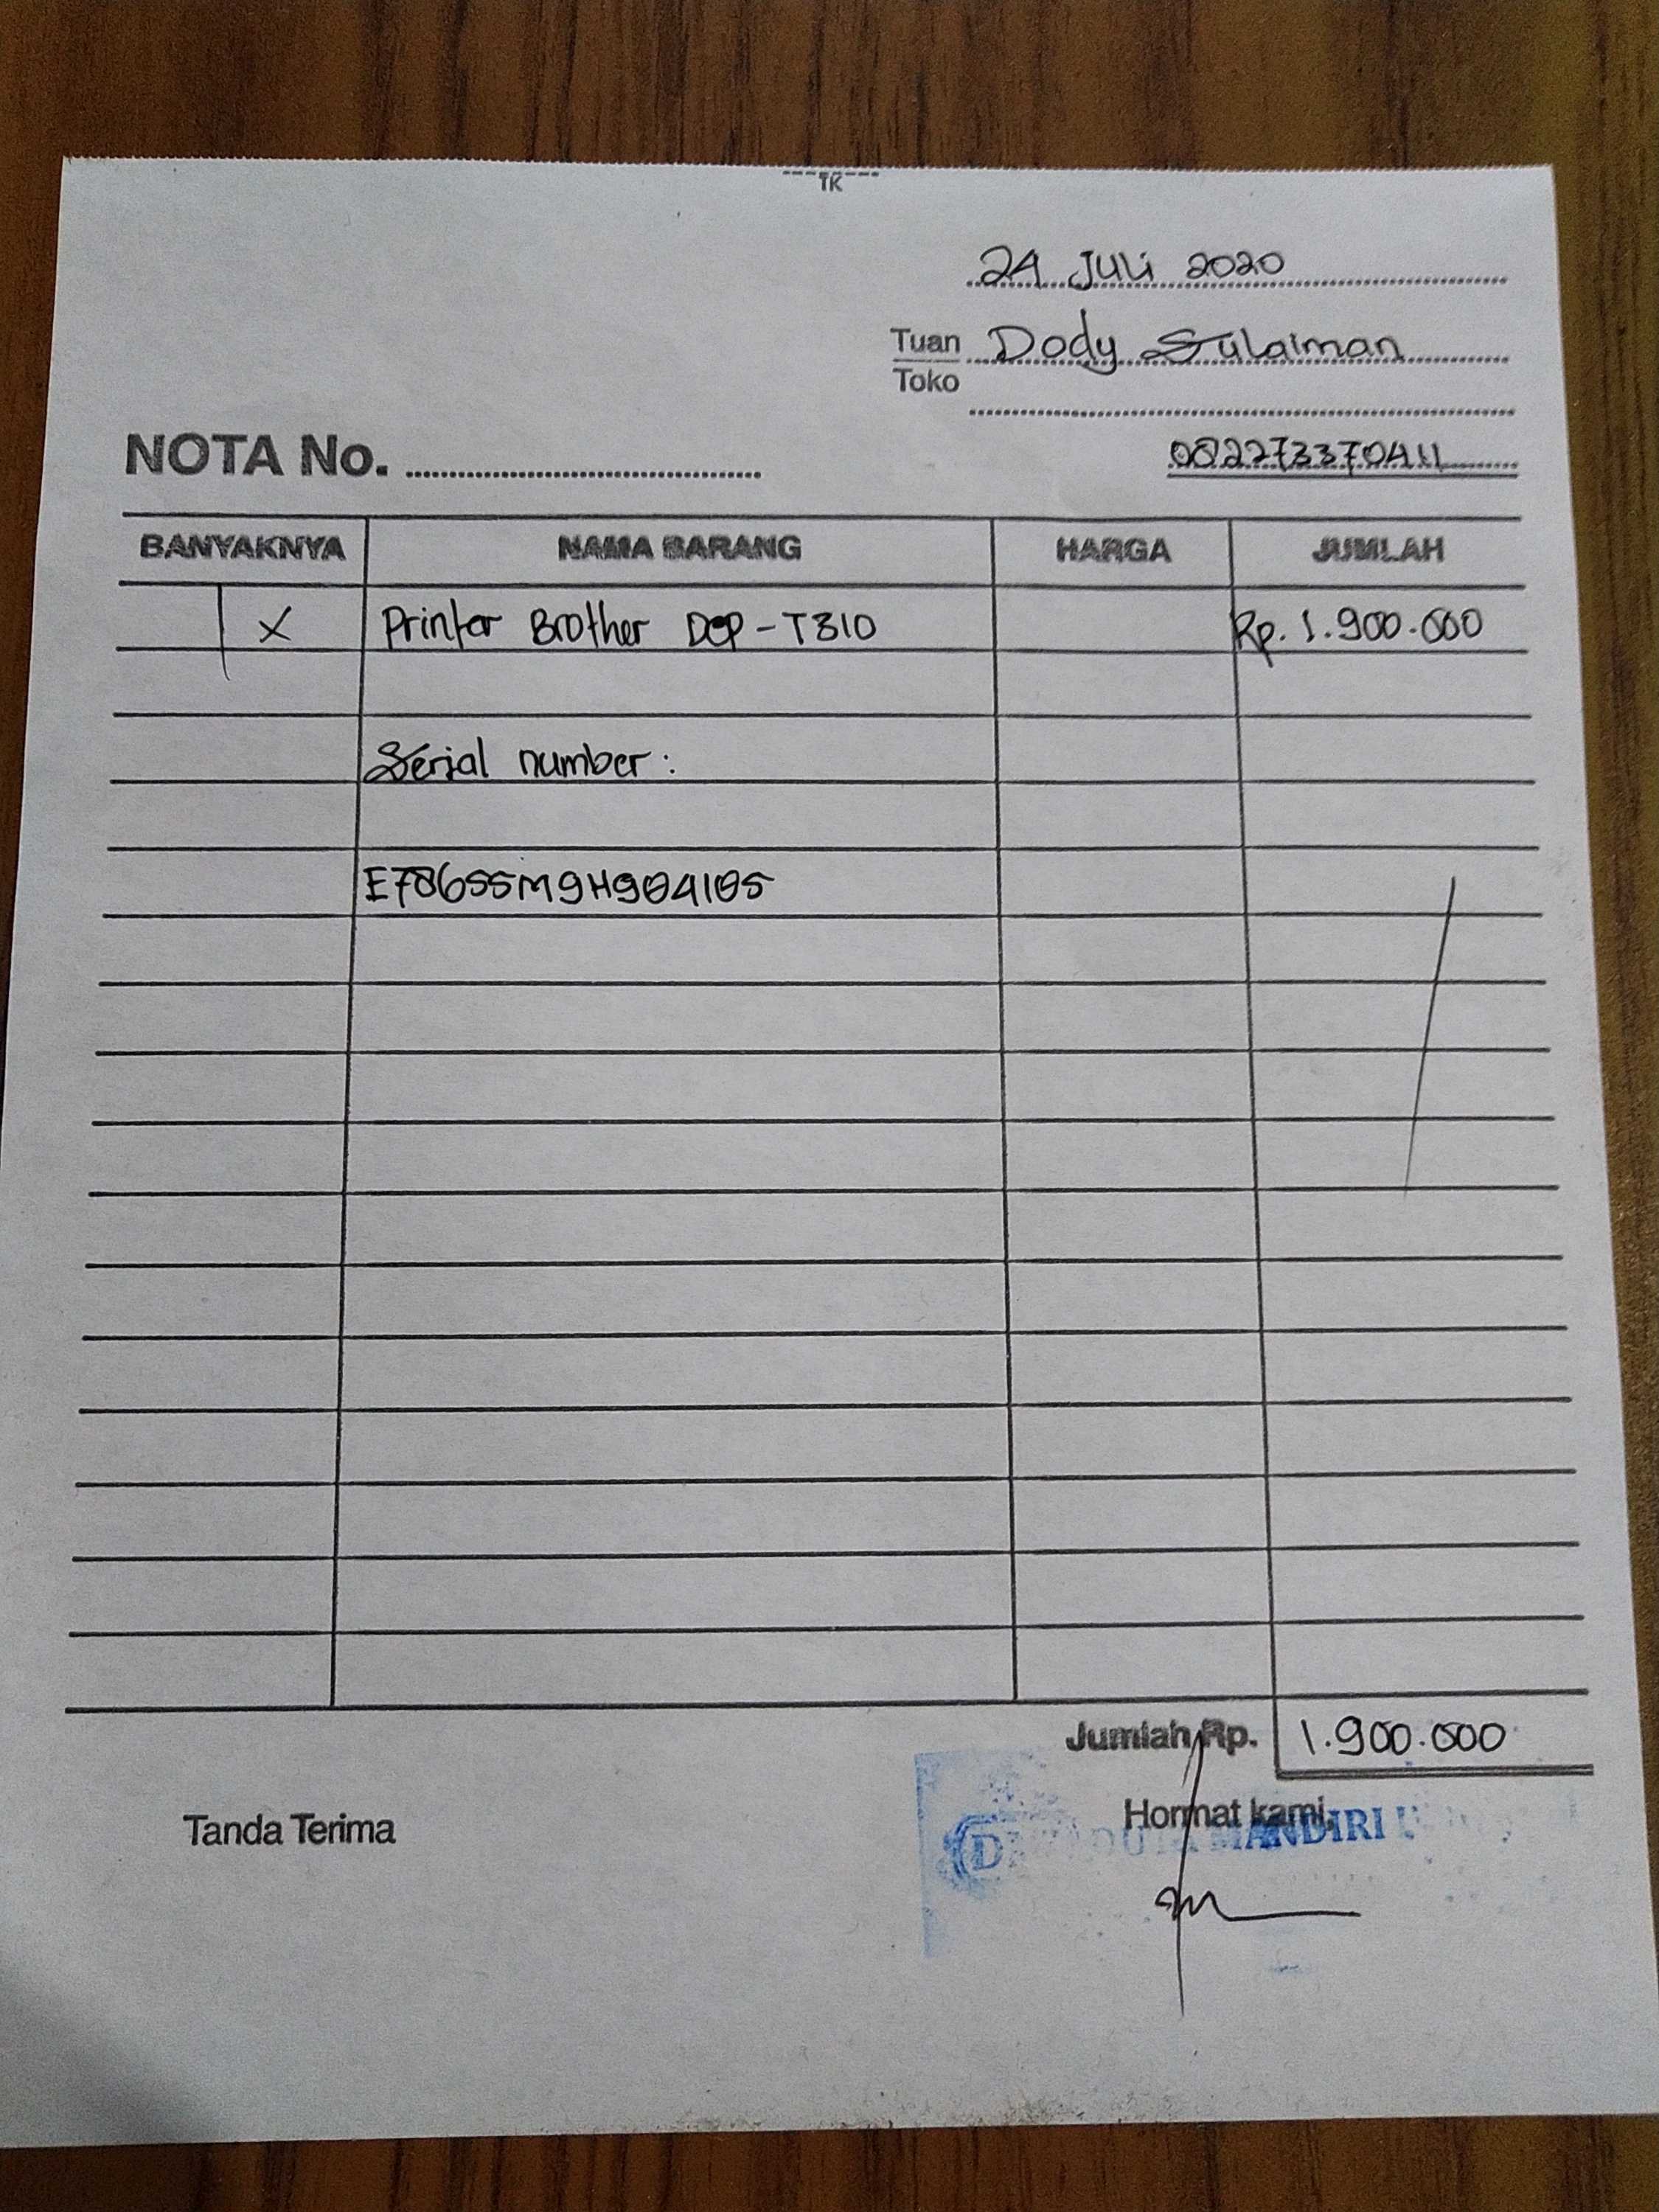 TK
24 Juli 2020
Tuan Dody Sulaiman
Toko
NOTA No. 082273370411
BANYAKNYA NAMA BARANG HARGA JUMLAH
1 X Printer Brother DCP-T310 Rp. 1.900.000
Serial number :
E78655M9H904105
Jumlah Rp. 1.900.000
Tanda Terima Hormat kami,
MANDIRI